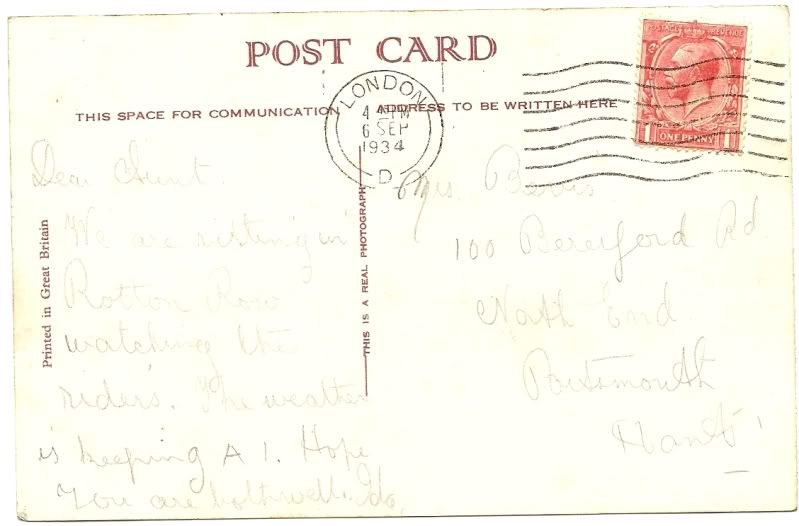 POST CARD
THIS SPACE FOR COMMUNICATION
ADDRESS TO BE WRITTEN HERE
LONDON
6 SEP
1934
D
POSTAGE REVENUE
1 ONE PENNY 1
Printed in Great Britain
THIS IS A REAL PHOTOGRAPH
Dear Aunt
We are sitting in
Rotton Row
watching the
riders. The weather
is keeping A 1. Hope
you are both well.
Mrs.
100 Beresford Rd
North End
Portsmouth
Hants